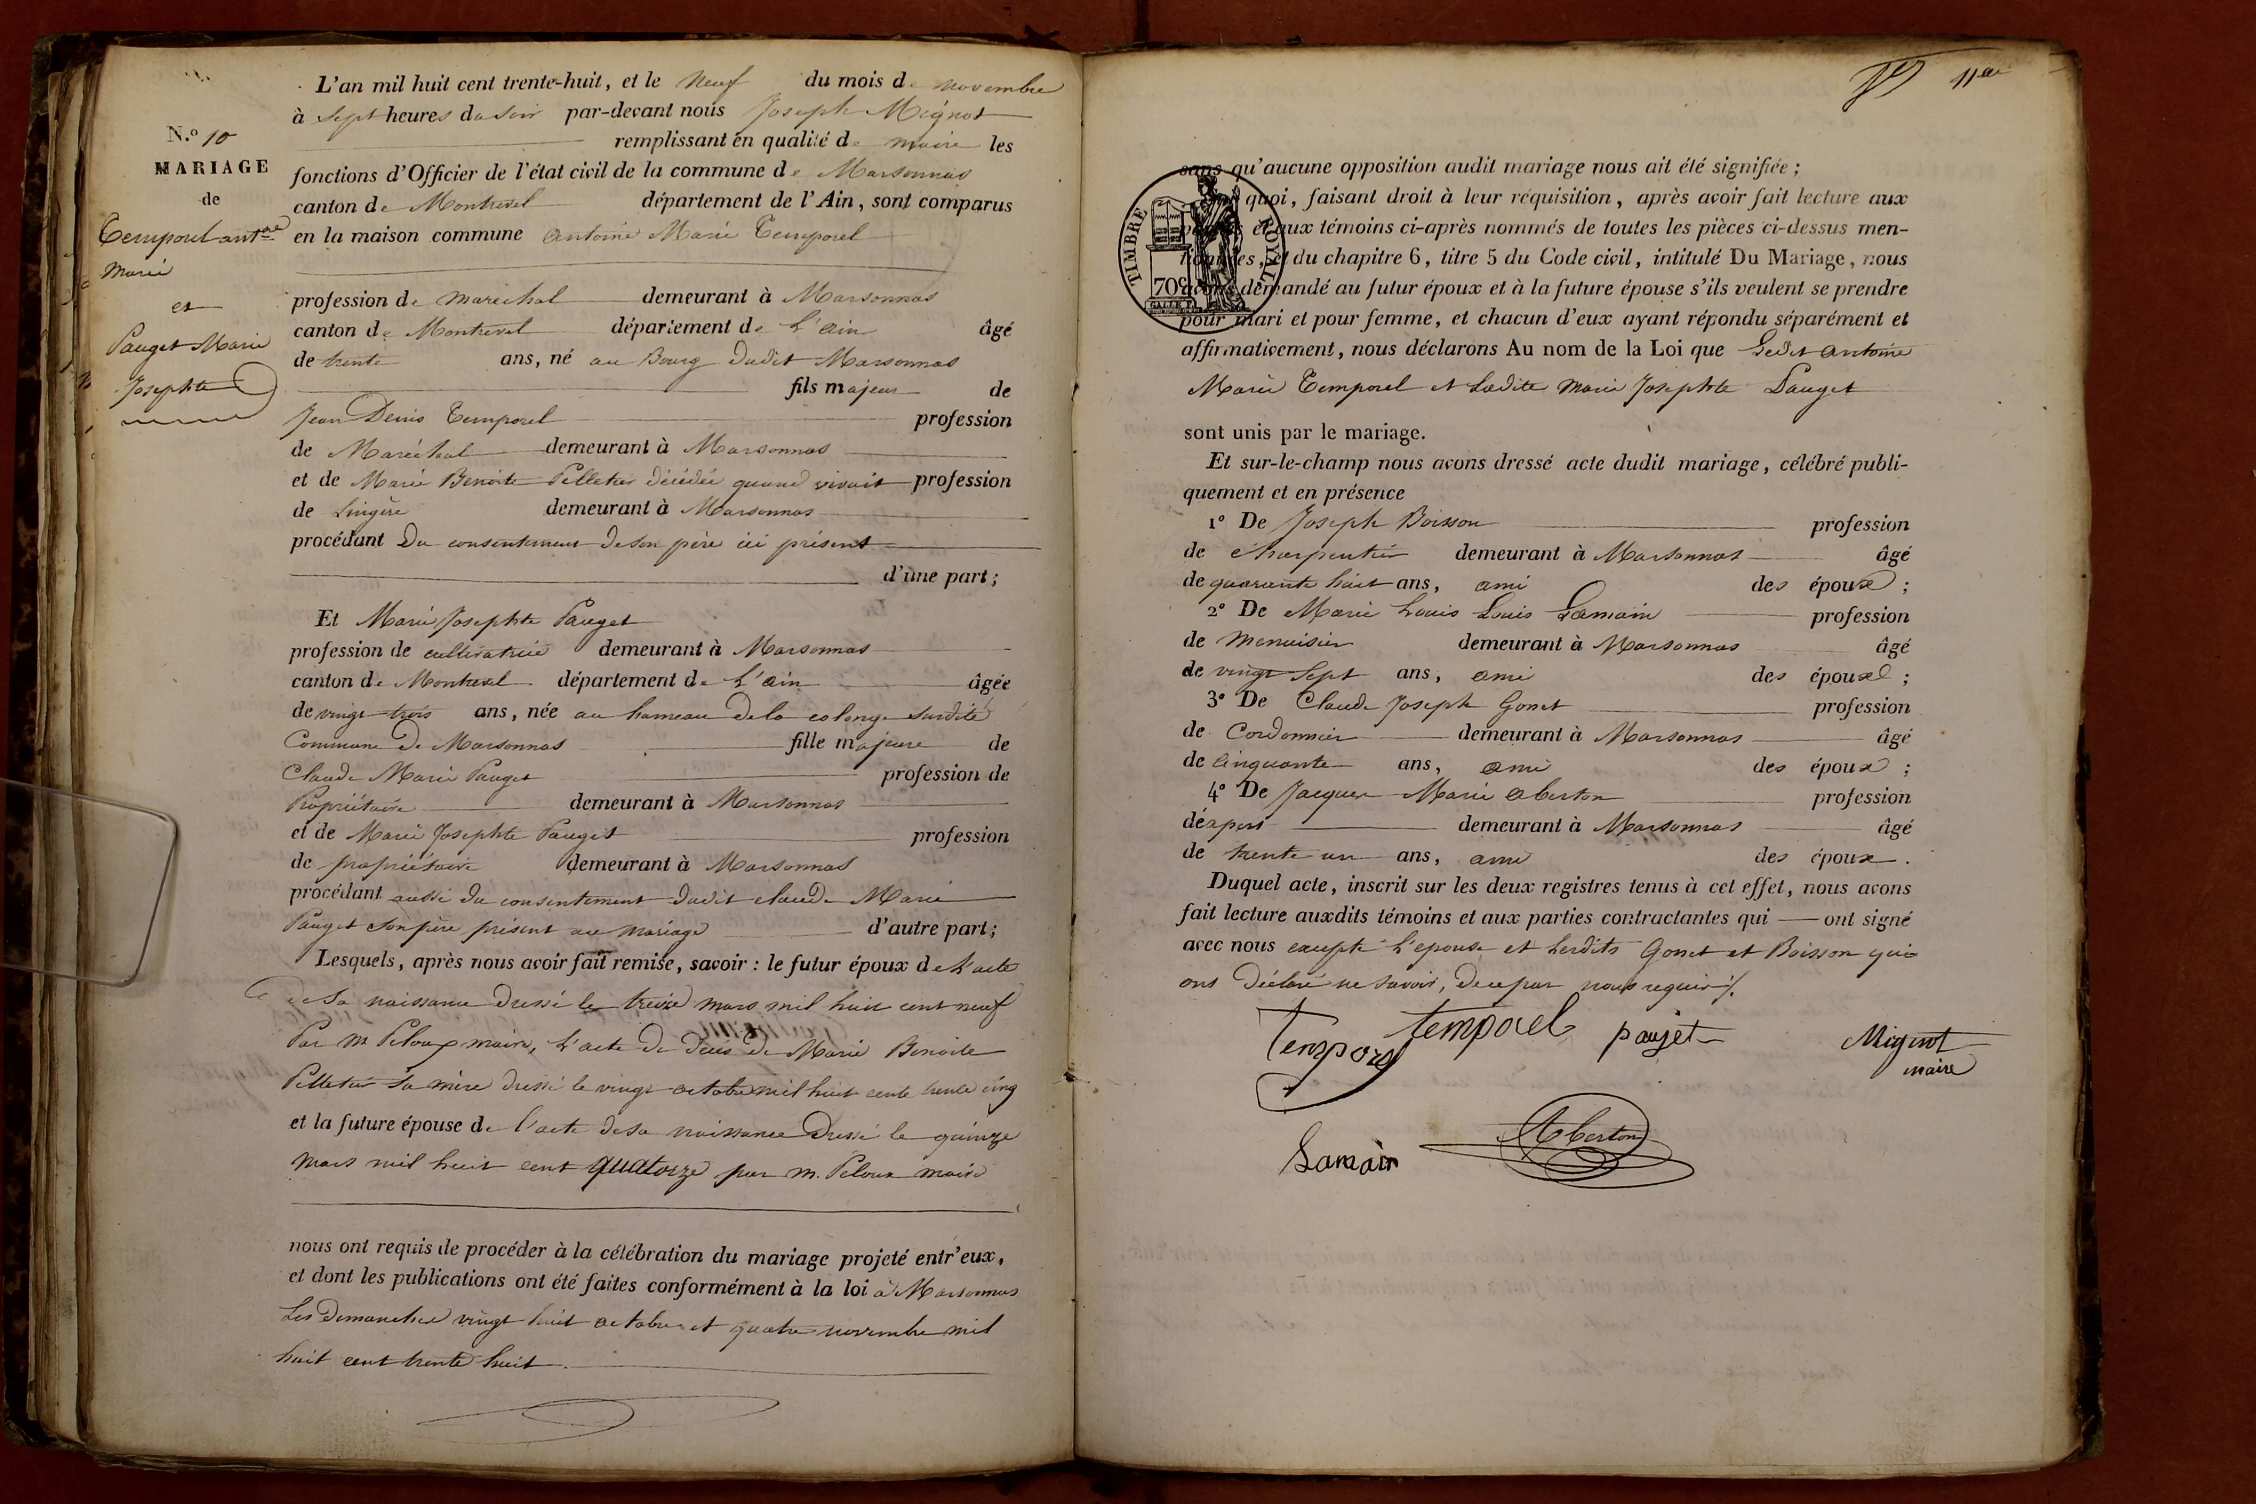 N.º 10
MARIAGE
de
Temporel ant.ne
Marie
et
Pauget Marie
Josephte
L'an mil huit cent trente-huit, et le neuf du mois de novembre
à sept heures du soir par-devant nous Joseph Mignot
remplissant en qualité de maire les
fonctions d'Officier de l'état civil de la commune de Marsonnas
canton de Montrevel département de l'Ain, sont comparus
en la maison commune Antoine Marie Temporel
profession de maréchal demeurant à Marsonnas
canton de Montrevel département de L'ain âgé
de trente ans, né au Bourg dudit Marsonnas
fils majeur de
Jean Denis Temporel profession
de Maréchal demeurant à Marsonnas
et de Marie Benoite Pelletier décédée quand vivait profession
de Lingère demeurant à Marsonnas
procédant Du consentement de son père ici présent
d'une part;
Et Marie Josephte Pauget
profession de cultivatrice demeurant à Marsonnas
canton de Montrevel département de L'ain âgée
de vingt trois ans, née au hameau de la colonge susdite
Commune de Marsonnas fille majeure de
Claude Marie Pauget profession de
Propriétaire demeurant à Marsonnas
et de Marie Josephte Pauget profession
de propriétaire demeurant à Marsonnas
procédant aussi du consentement dudit claude Marie
Pauget son père présent au mariage d'autre part;
Lesquels, après nous avoir fait remise, savoir : le futur époux de L'acte
de sa naissance dressé le treize mars mil huit cent neuf
Par M. Peloux maire, L'acte de décès de Marie Benoite
Pelletier sa mère dressé le vingt octobre mil huit cent trente cinq
et la future épouse de l'acte de sa naissance dressé le quinze
mars mil huit cent quatorze par M. Peloux maire
nous ont requis de procéder à la célébration du mariage projeté entr'eux,
et dont les publications ont été faites conformément à la loi à Marsonnas
Les Dimanches vingt huit octobre et quatre novembre mil
huit cent trente huit.
11
sans qu'aucune opposition audit mariage nous ait été signifiée;
quoi, faisant droit à leur réquisition, après avoir fait lecture aux
et aux témoins ci-après nommés de toutes les pièces ci-dessus men-
et du chapitre 6, titre 5 du Code civil, intitulé Du Mariage, nous
avons demandé au futur époux et à la future épouse s'ils veulent se prendre
pour mari et pour femme, et chacun d'eux ayant répondu séparément et
affirmativement, nous déclarons Au nom de la Loi que Ledit Antoine
Marie Temporel et Ladite Marie Josephte Pauget
sont unis par le mariage.
Et sur-le-champ nous avons dressé acte dudit mariage, célébré publi-
quement et en présence
1º De Joseph Boisson profession
de charpentier demeurant à Marsonnas âgé
de quarante huit ans, ami des époux;
2º De Marie Louis Louis Lamain profession
de menuisier demeurant à Marsonnas âgé
de vingt sept ans, ami des époux;
3º De Claude Joseph Gonet profession
de Cordonnier demeurant à Marsonnas âgé
de cinquante ans, ami des époux;
4º De Jacques Marie Aberton profession
demeurant à Marsonnas âgé
de trente un ans, ami des époux.
Duquel acte, inscrit sur les deux registres tenus à cet effet, nous avons
fait lecture auxdits témoins et aux parties contractantes qui ont signé
avec nous excepté L'epouse et Lesdits Gonet et Boisson qui
ont Déclaré ne savoir, de ce par nous requis /.
Temporel temporel paujet Mignot
maire
Lamain Aberton
TIMBRE ROYAL
70c